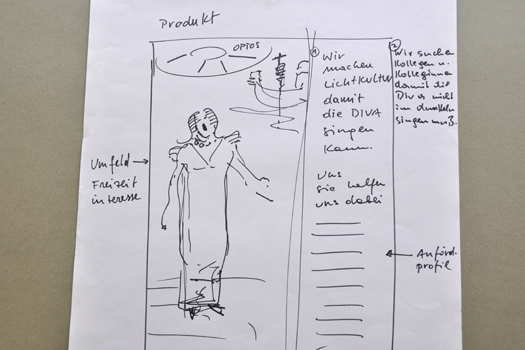 Produkt
OPTOS
1
Wir
machen
Lichtkultur
damit
die DIVA
singen
kann.
Und
sie helfen
uns dabei
2
Wir suchen
Kollegen u.
Kolleginnen
damit die
Diva nicht
im dunkeln
singen muß.
Umfeld
Freizeit
interesse
Anford.
profil